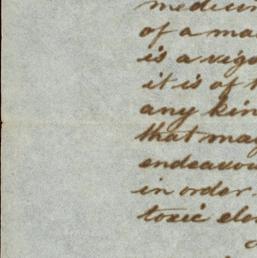 medicin
of a ma
is a vigo
it is of t
any kin
that may
endeavou
in order
toxic ele